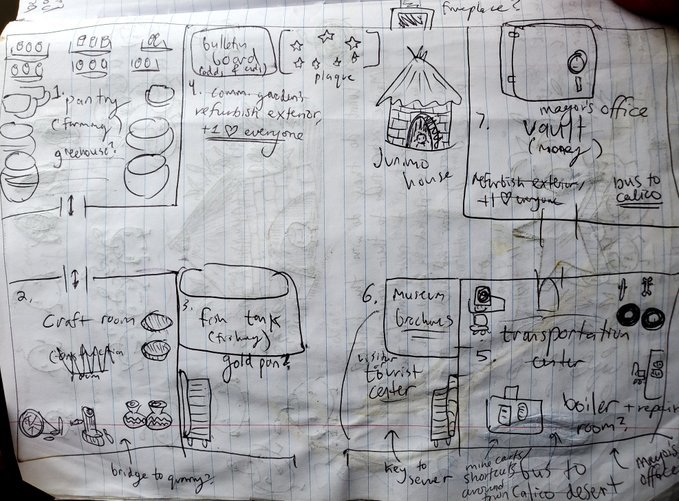 fireplace?
bulletin
board
(odds & ends)
plaque
4. comm. gardens
refurbish exterior,
+1 ♡ everyone
1. pantry
(farming)
greenhouse?
Junimo
house
mayor's office
7. vault
(money)
refurbish exterior,
+1 ♡ everyone
bus to
calico
2.
craft room
room
bridge to quarry?
3. fish tank
(fishing)
gold pan?
6. museum
brochures
visitor
tourist
center
key to
sewer
5. transportation
center
boiler + repair
room?
mine carts
shortcuts
around
town
bus to
calico desert
mayor's
office